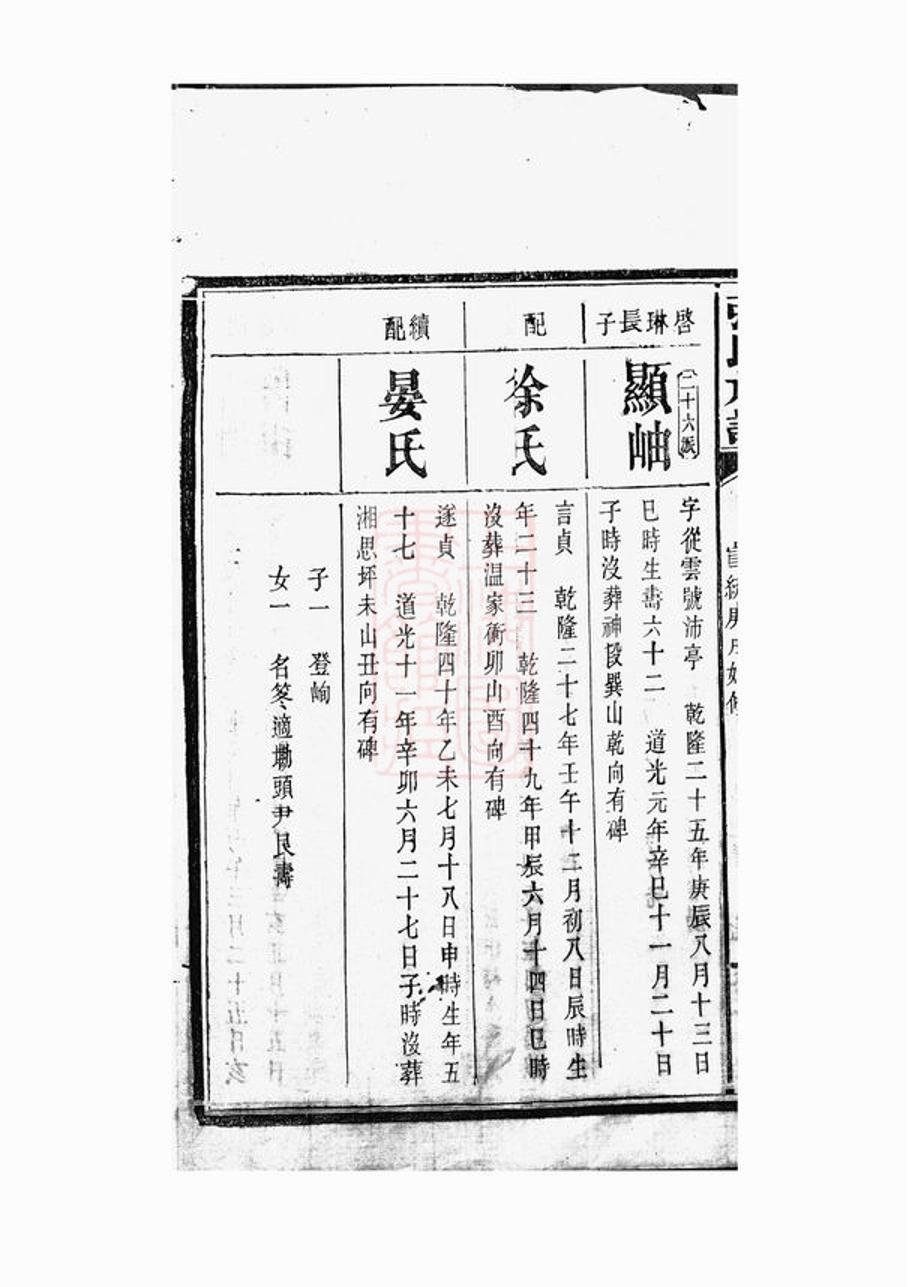 啓琳長子
二十六派
顯岫
字從雲號沛亭 乾隆二十五年庚辰八月十三日
巳時生壽六十二 道光元年辛巳十一月二十日
子時沒葬神段巽山乾向有碑
配
徐氏
言貞 乾隆二十七年壬午十二月初八日辰時生
年二十三 乾隆四十九年甲辰六月十四日巳時
沒葬温家衝卯山酉向有碑
續配
晏氏
遂貞 乾隆四十年乙未七月十八日申時生年五
十七 道光十一年辛卯六月二十七日子時沒葬
湘思坪未山丑向有碑
子一 登峋
女一 名冬適塘頭尹良壽